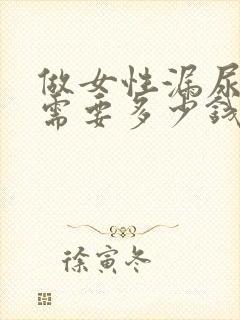 做女性漏尿
需要多少钱
徐寅冬